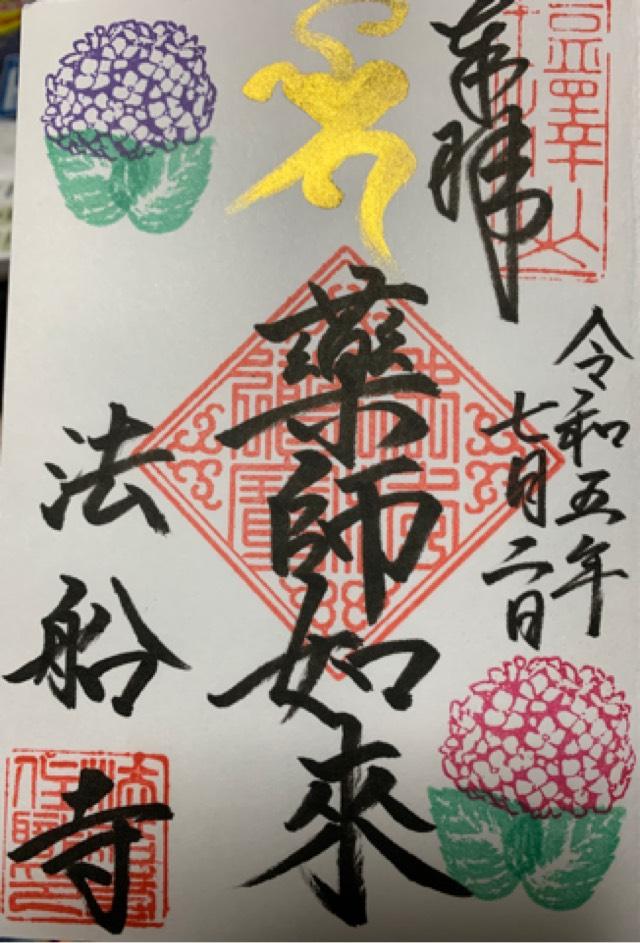 奉拝
令和五年
七月二日
薬師如來
法船寺